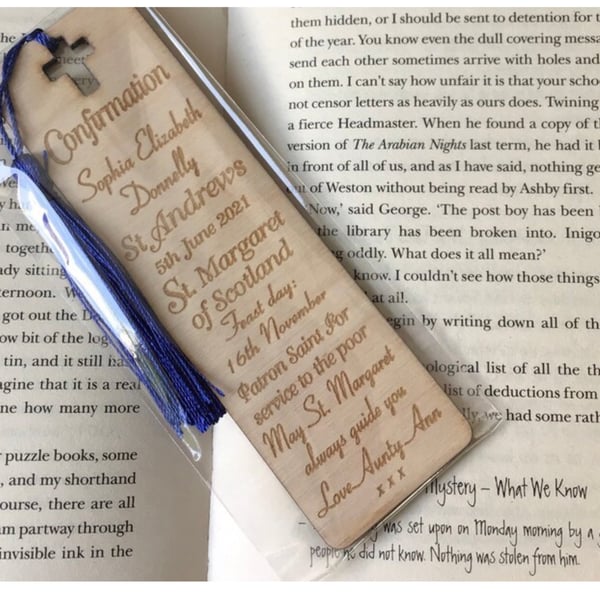 meet
very
Confirmation
Sophia Elizabeth
Donnelly
St Andrews
5th June 2021
St. Margaret
of Scotland
Feast day:
16th November
Patron Saint For
service to the poor
May St. Margaret
always guide you
Love Aunty Ann
x x x
togeth
ady sitting
ternoon. W
got out the D
ow bit of the log
tin, and it still ha
agine that it is a real
ne how many more
puzzle books, some
, and my shorthand
ourse, there are all
m partway through
invisible ink in the
them hidden, or I should be sent to detention for t
of the year. You know even the dull covering messa
send each other sometimes arrive with holes and
on them. I can't say how unfair it is that your scho
not censor letters as heavily as ours does. Twining
a fierce Headmaster. When he found a copy of th
version of The Arabian Nights last term, he had it b
in front of all of us, and as I have said, nothing ge
of Weston without being read by Ashby first.
'Now,' said George. 'The post boy has been
the library has been broken into. Inigo
g oddly. What does it all mean?'
know. I couldn't see how those things
at all.
egin by writing down all of th
ological list of all the th
list of deductions from
ly, we had some rath
Mystery – What We Know
– was set upon on Monday morning by a
people he did not know. Nothing was stolen from him.